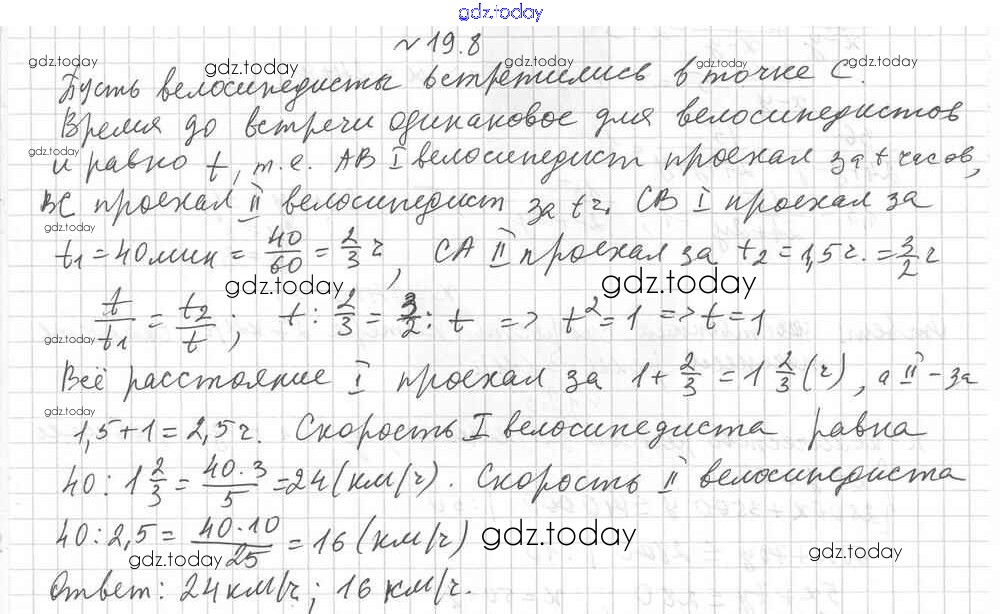 gdz.today
№ 19.8
gdz.today gdz.today gdz.today gdz.today gdz.today
Пусть велосипедисты встретились в точке С.
Время до встречи одинаковое для велосипедистов
gdz.today
и равно t, т.е. АВ I велосипедист проехал за t часов,
ВС проехал II велосипедист за t ч. СВ I проехал за
gdz.today
t₁ = 40 мин = 40/60 = 2/3 ч, СА II проехал за t₂ = 1,5 ч. = 3/2 ч
gdz.today gdz.today
t/t₁ = t₂/t; t : 2/3 = 3/2 : t => t² = 1 => t = 1
gdz.today
Всё расстояние I проехал за 1 + 2/3 = 1 2/3 (ч), а II – за
gdz.today
1,5 + 1 = 2,5 ч. Скорость I велосипедиста равна
40 : 1 2/3 = 40·3/5 = 24 (км/ч). Скорость II велосипедиста
40 : 2,5 = 40·10/25 = 16 (км/ч)
gdz.today gdz.today gdz.today
Ответ: 24 км/ч; 16 км/ч.